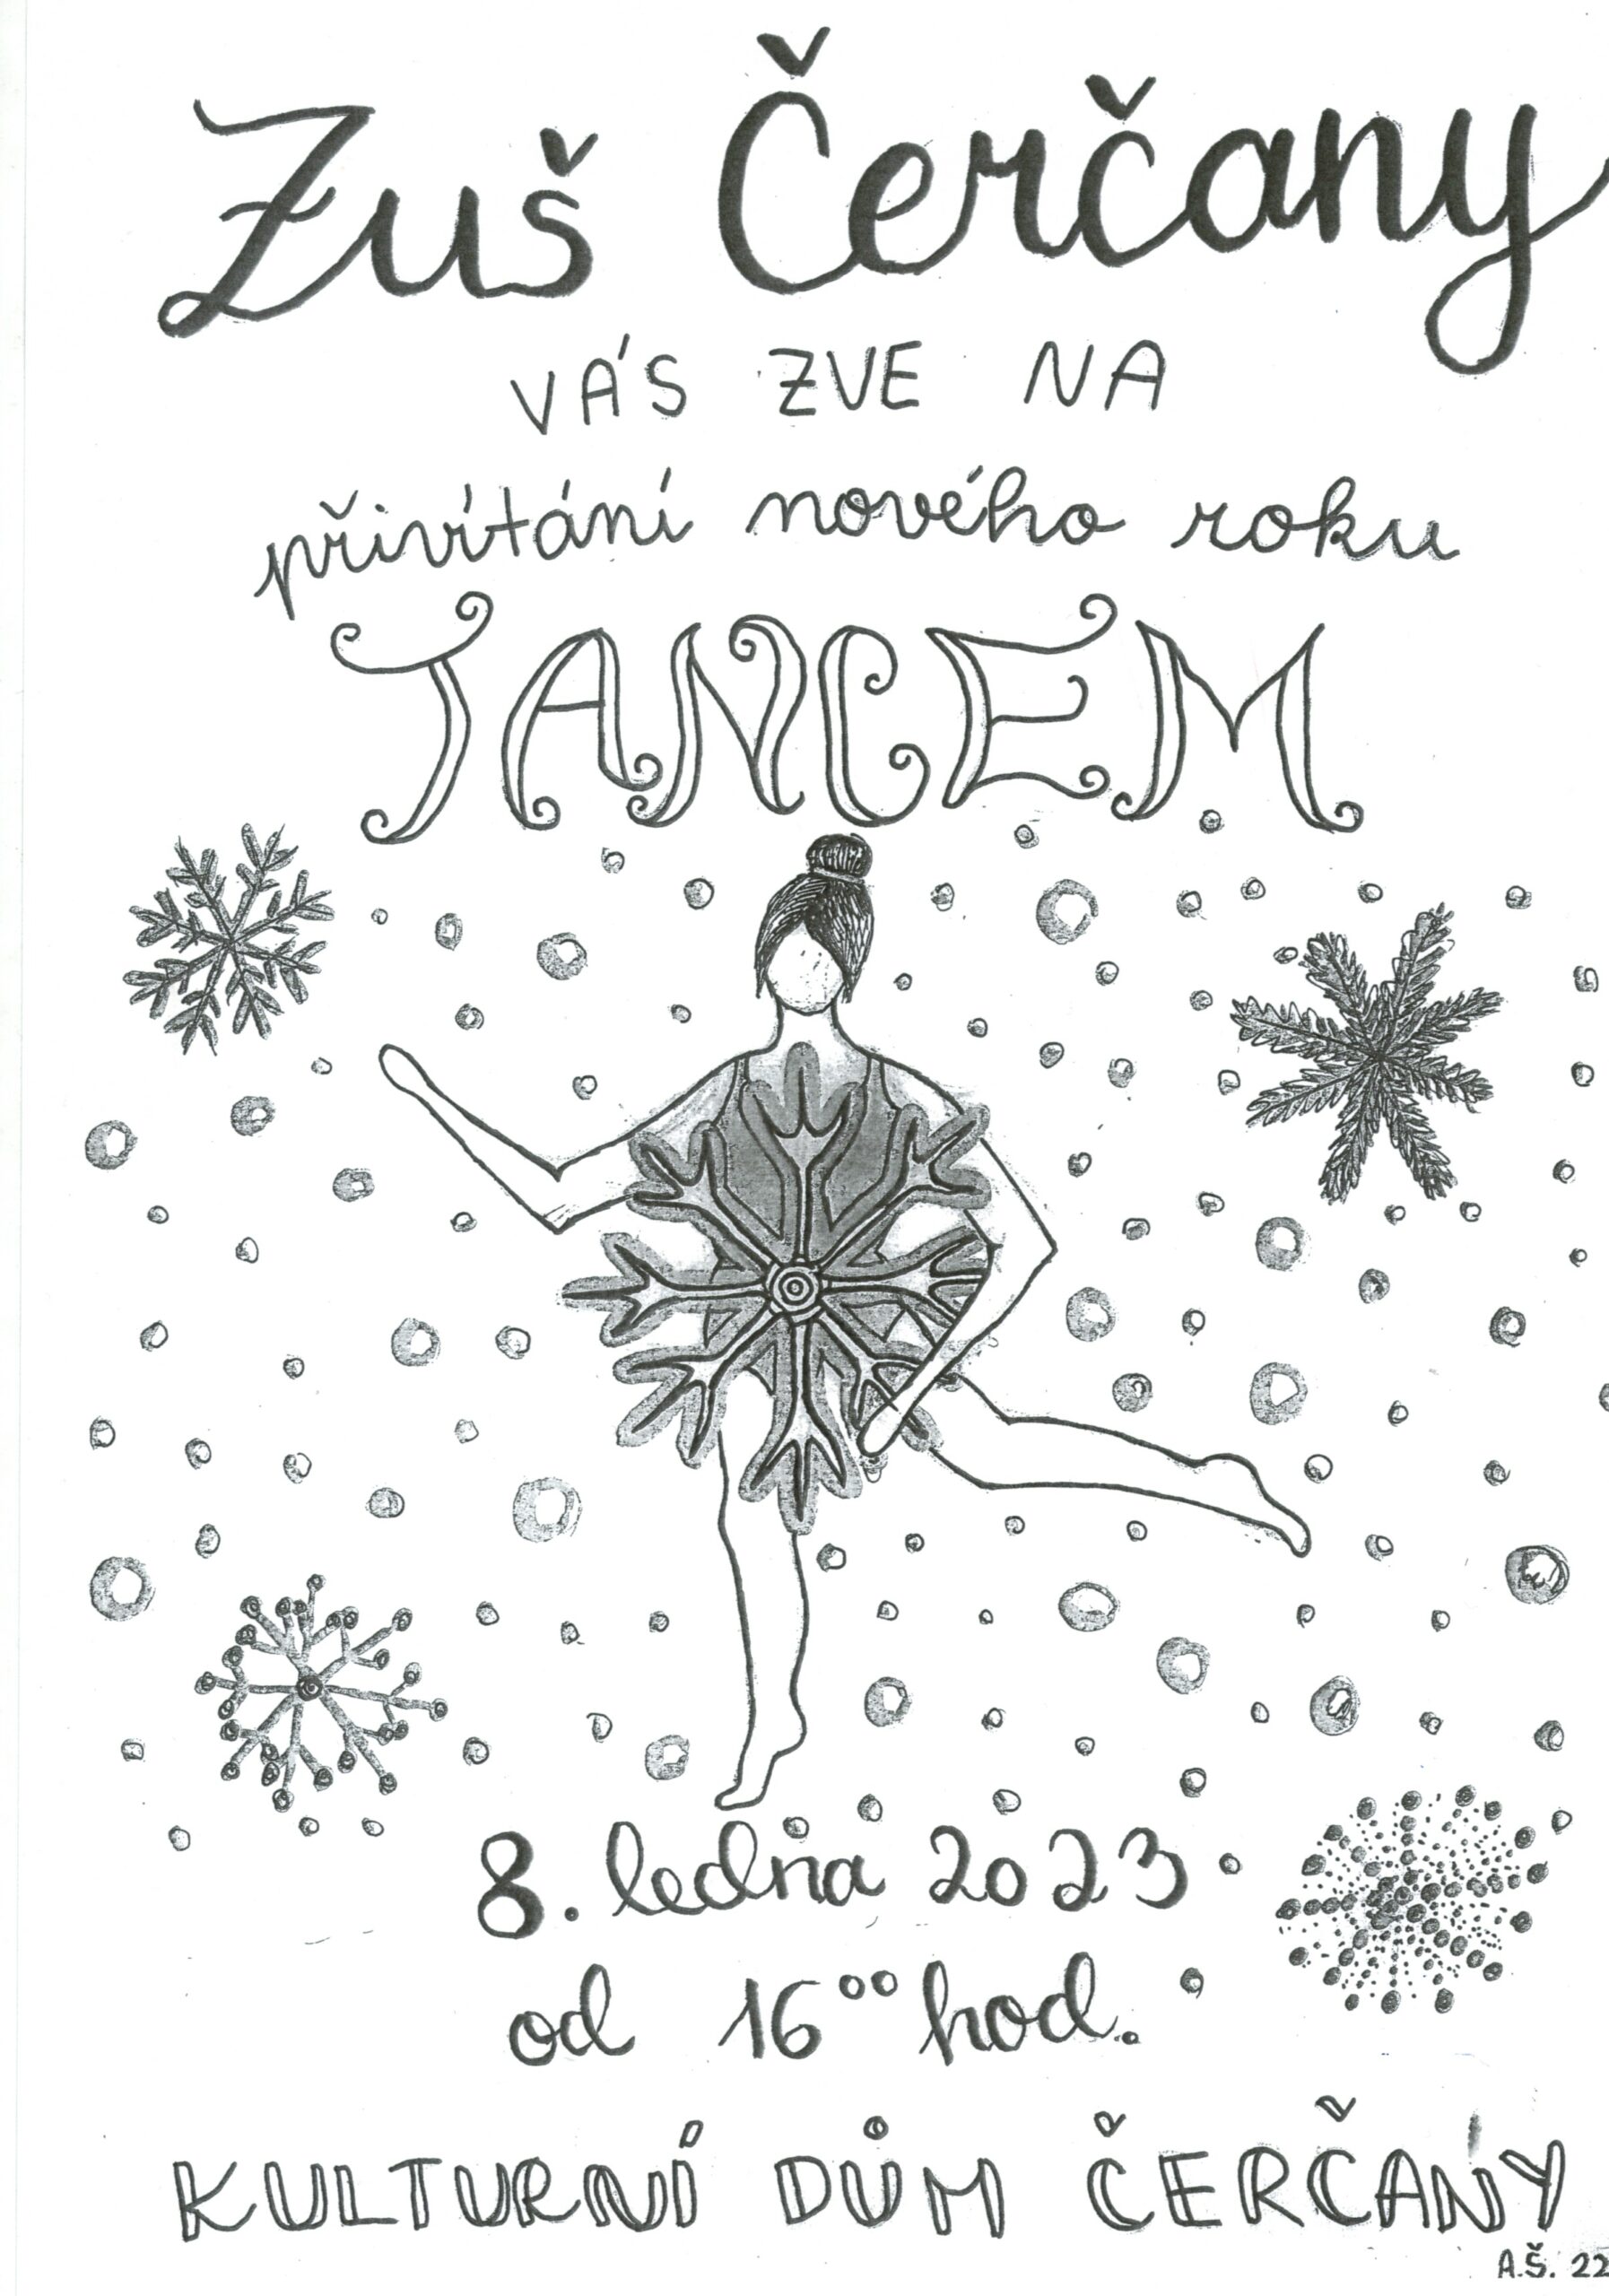 Zuš Čerčany
VÁS ZVE NA
přivítání nového roku
TANCEM
8. ledna 2023
od 16°° hod.
KULTURNÍ DŮM ČERČANY
A.Š. 22